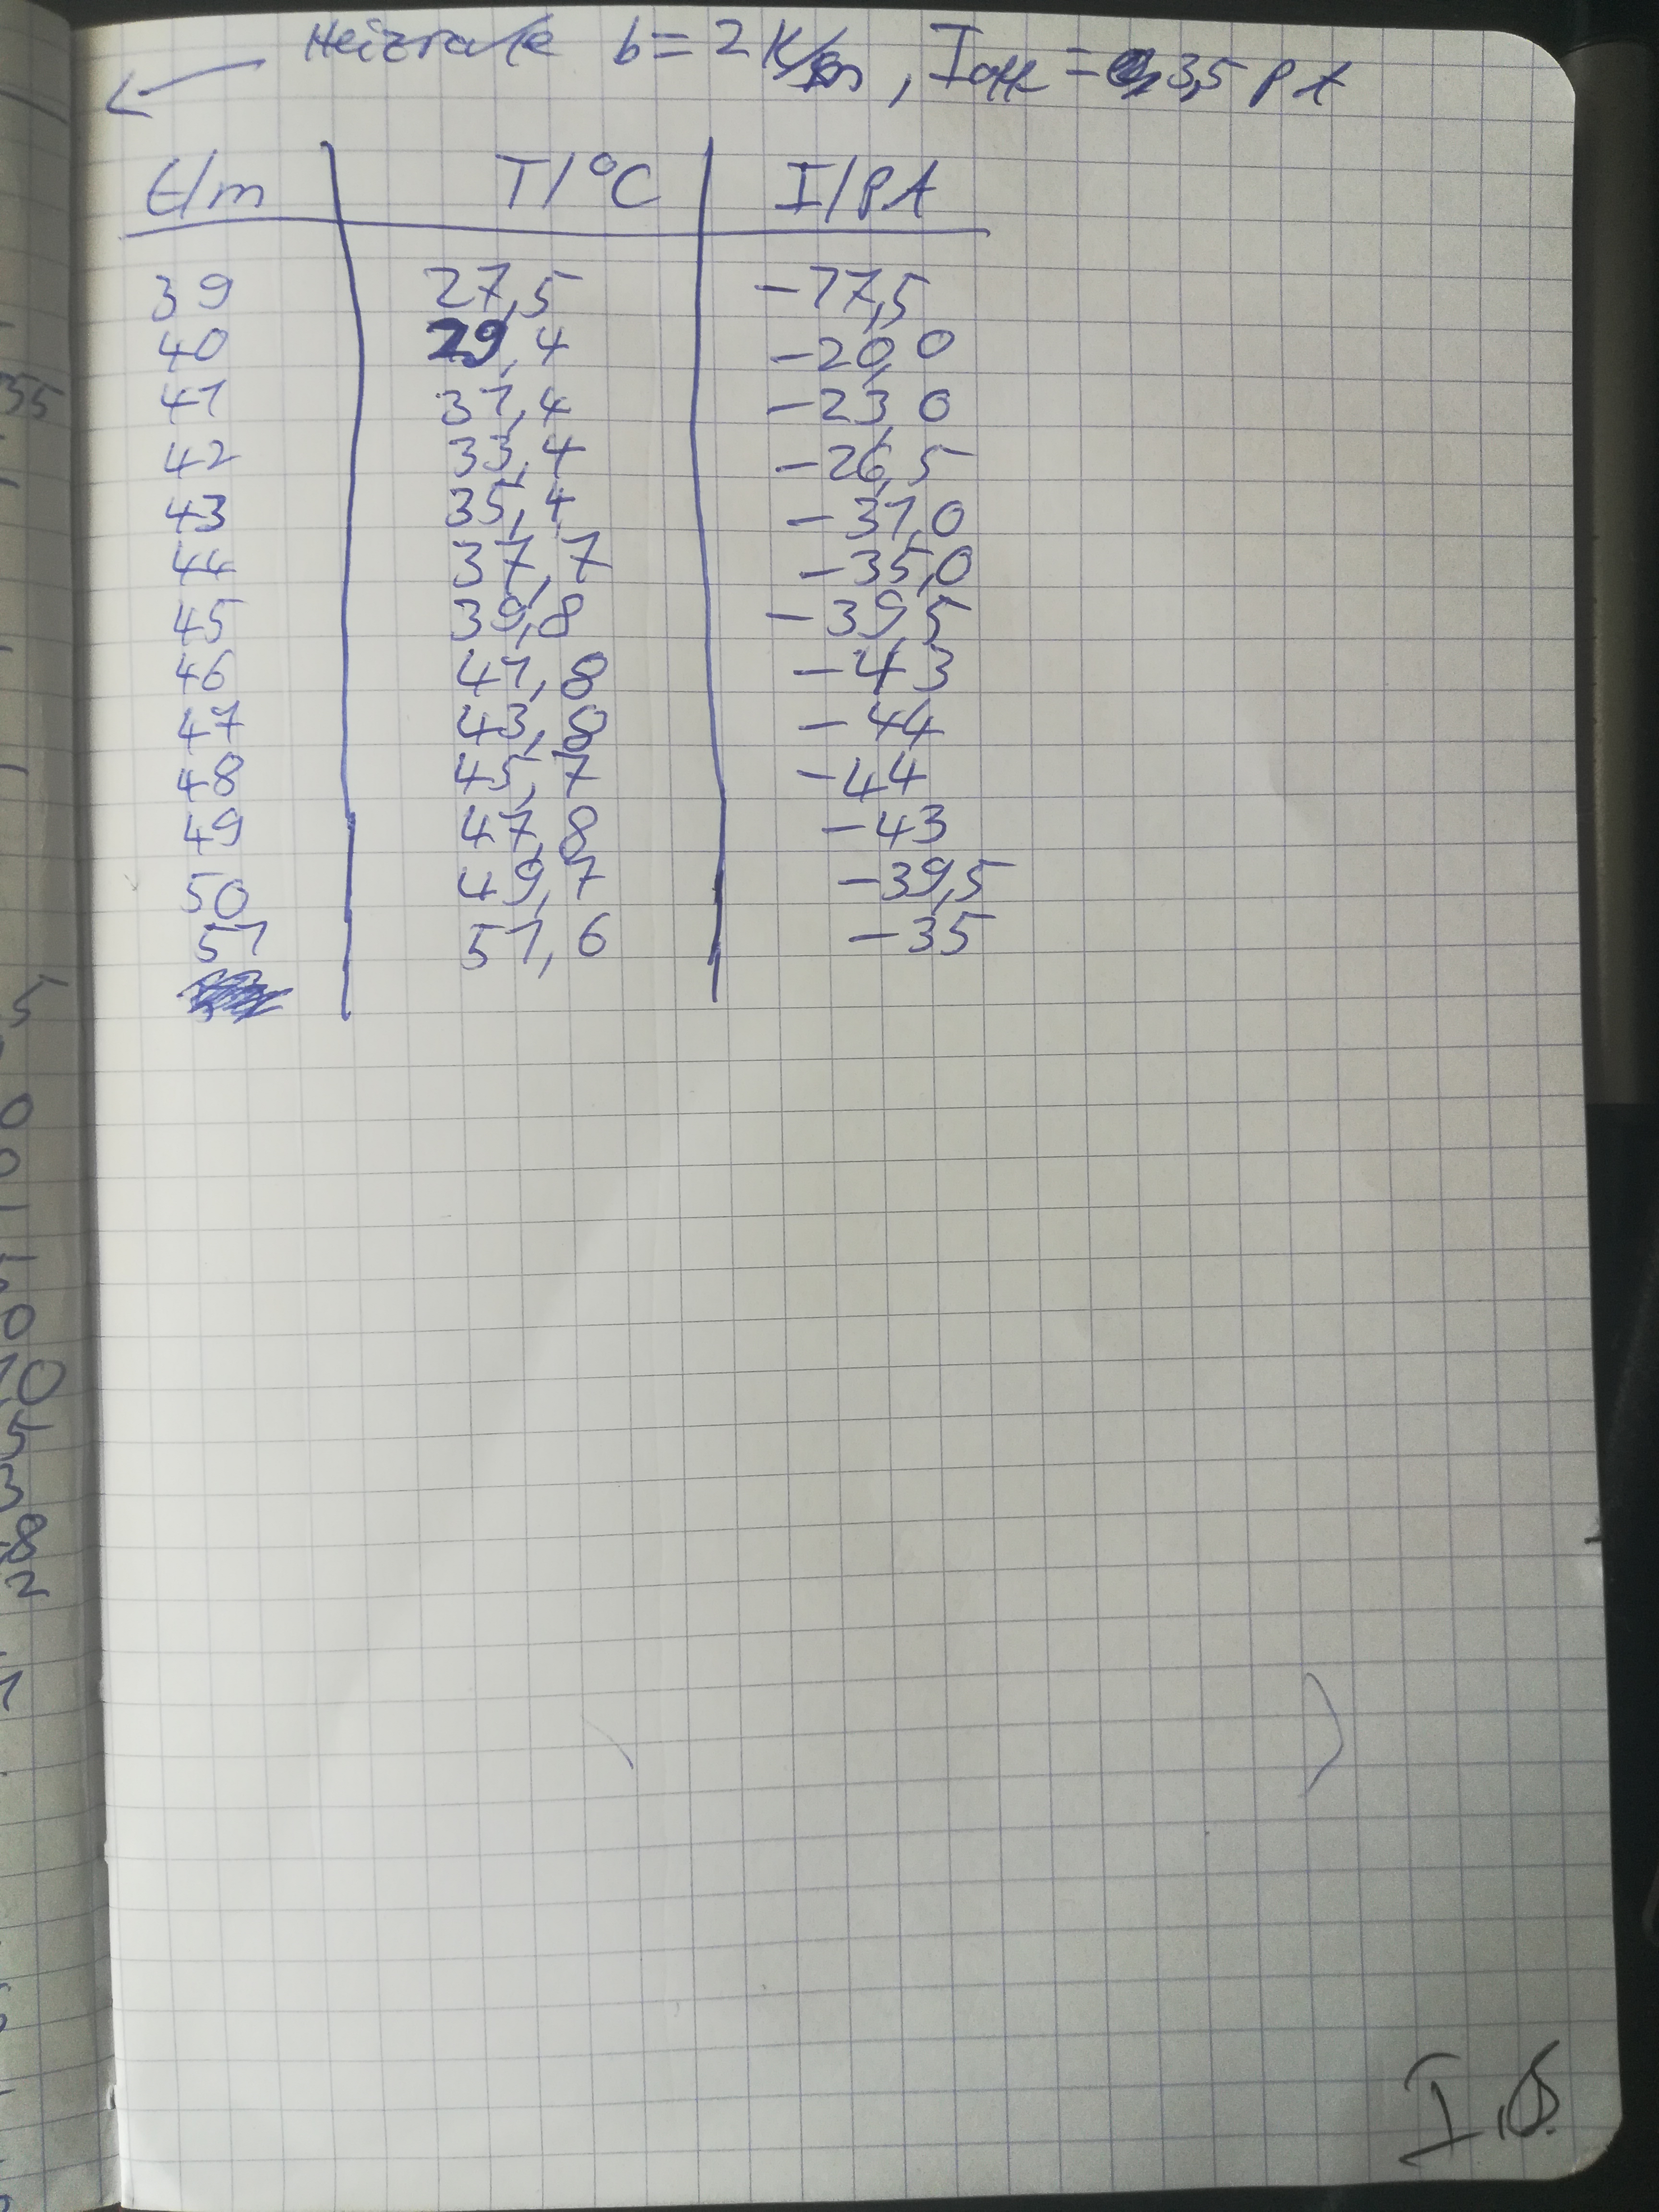 Heizrate b = 2 K/m , Ioff = 3,5 pA
t/m T/°C I/pA
39 27,5 -17,5
40 29,4 -20,0
41 31,4 -23,0
42 33,4 -26,5
43 35,4 -31,0
44 37,7 -35,0
45 39,8 -39,5
46 41,8 -43
47 43,8 -44
48 45,7 -44
49 47,8 -43
50 49,7 -39,5
51 51,6 -35